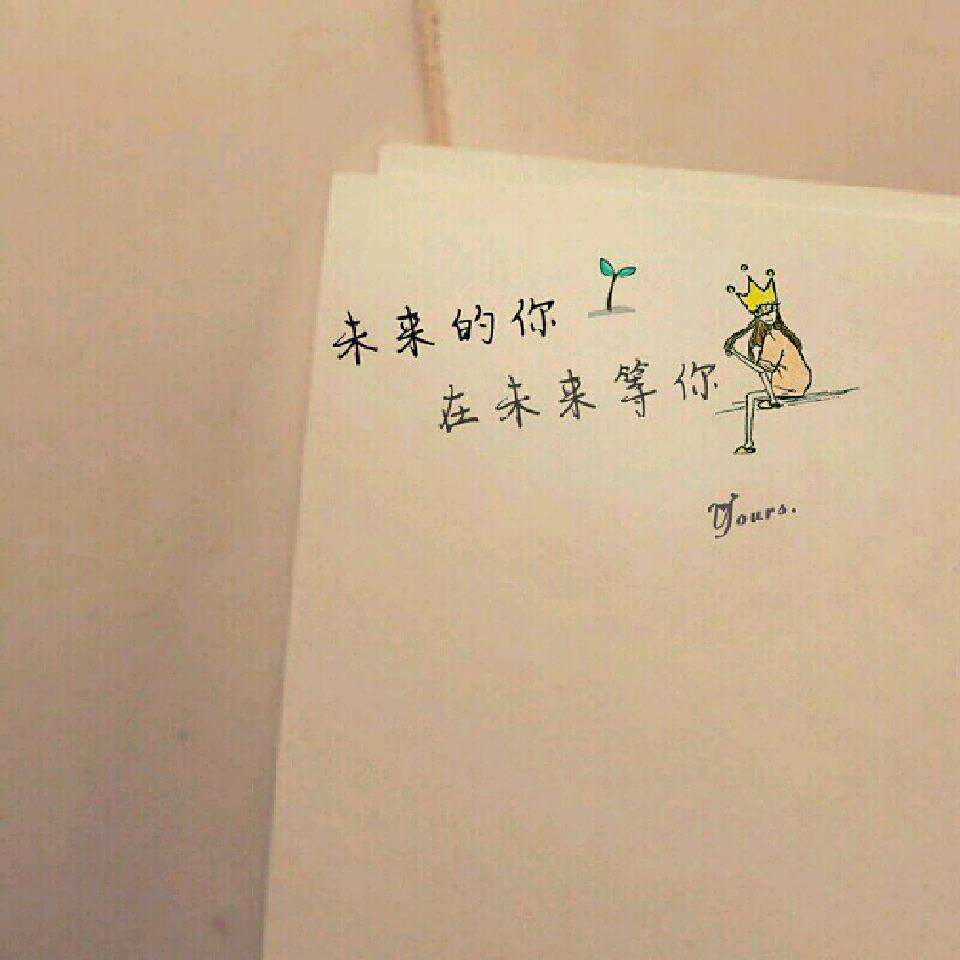 未来的你
在未来等你
Yours.